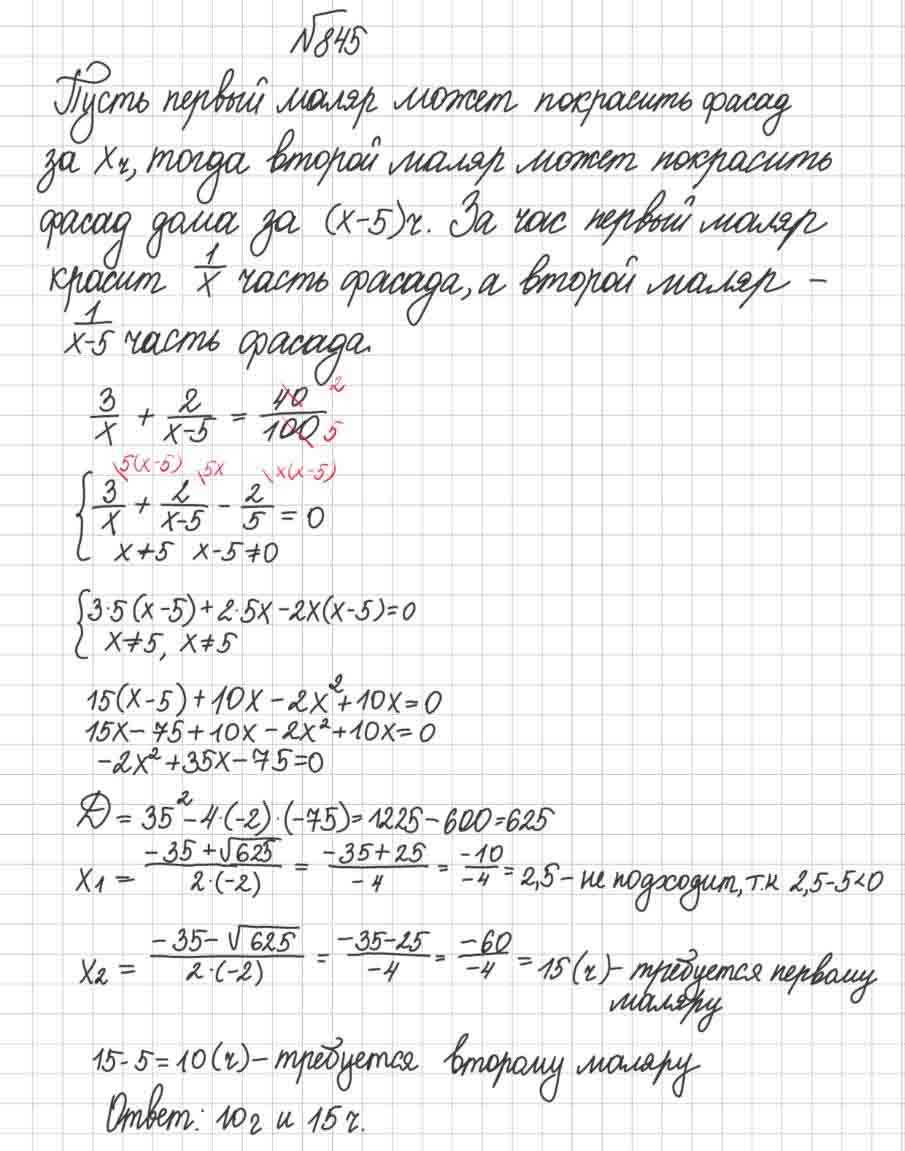 №845
Пусть первый маляр может покрасить фасад
за x ч, тогда второй маляр может покрасить
фасад дома за (x-5) ч. За час первый маляр
красит 1/x часть фасада, а второй маляр –
1/(x-5) часть фасада.
3/x + 2/(x-5) = 40/100 2 5
5(x-5) 5x x(x-5)
{ 3/x + 2/(x-5) - 2/5 = 0
x≠5 x-5≠0
{ 3·5(x-5)+2·5x-2x(x-5)=0
x≠5, x≠5
15(x-5)+10x-2x²+10x=0
15x-75+10x-2x²+10x=0
-2x²+35x-75=0
D = 35²-4·(-2)·(-75)=1225-600=625
x1 = (-35+√625)/(2·(-2)) = (-35+25)/(-4) = (-10)/(-4) = 2,5 - не подходит, т.к 2,5-5<0
x2 = (-35-√625)/(2·(-2)) = (-35-25)/(-4) = (-60)/(-4) = 15(ч) - требуется первому
маляру
15-5=10(ч) - требуется второму маляру
Ответ: 10ч и 15ч.